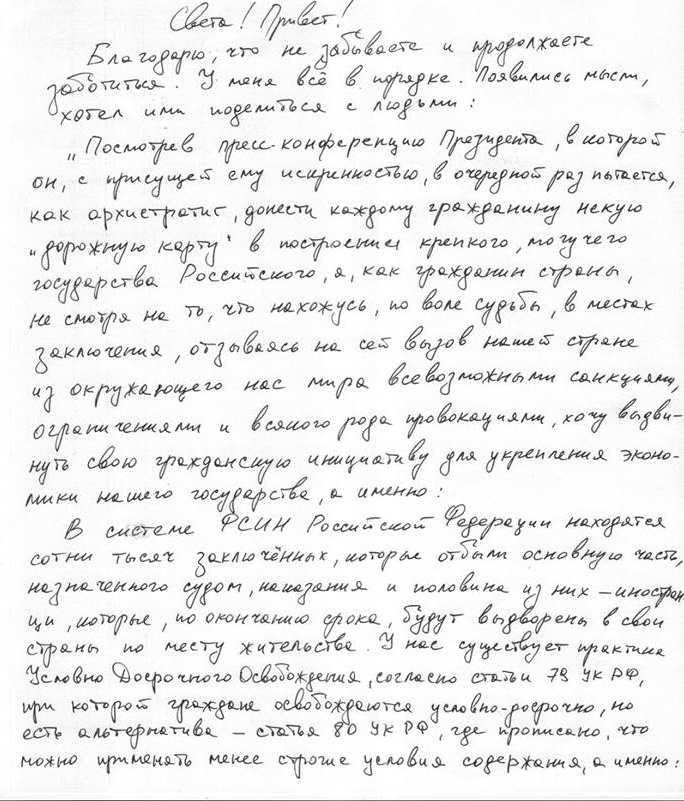 Света! Привет!
Благодарю, что не забываете и продолжаете
заботиться. У меня всё в порядке. Появились мысли,
хотел ими поделиться с людьми:
„Посмотрев пресс-конференцию Президента, в которой
он, с присущей ему искренностью, в очередной раз пытается,
как архистратиг, донести каждому гражданину некую
„дорожную карту" в построении крепкого, могучего
государства Российского, я, как гражданин страны,
не смотря на то, что нахожусь, по воле судьбы, в местах
заключения, отзываясь на сей вызов нашей стране
из окружающего нас мира всевозможными санкциями,
ограничениями и всякого рода провокациями, хочу выдви-
нуть свою гражданскую инициативу для укрепления эконо-
мики нашего государства, а именно:
В системе ФСИН Российской Федерации находятся
сотни тысяч заключённых, которые отбыли основную часть,
назначенного судом, наказания и половина из них – иностран
цы, которые, по окончанию срока, будут выдворены в свои
страны по месту жительства. У нас существует практика
Условно Досрочного Освобождения, согласно статьи 79 УК РФ,
при которой граждане освобождаются условно-досрочно, но
есть альтернатива – статья 80 УК РФ, где прописано, что
можно применять менее строгие условия содержания, а именно: